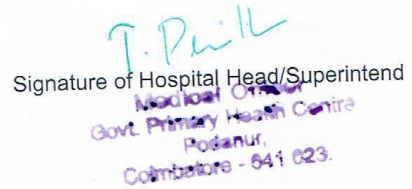 Signature of Hospital Head/Superintend
Medical Officer
Govt. Primary Health Centre
Podanur,
Coimbatore - 641 023.